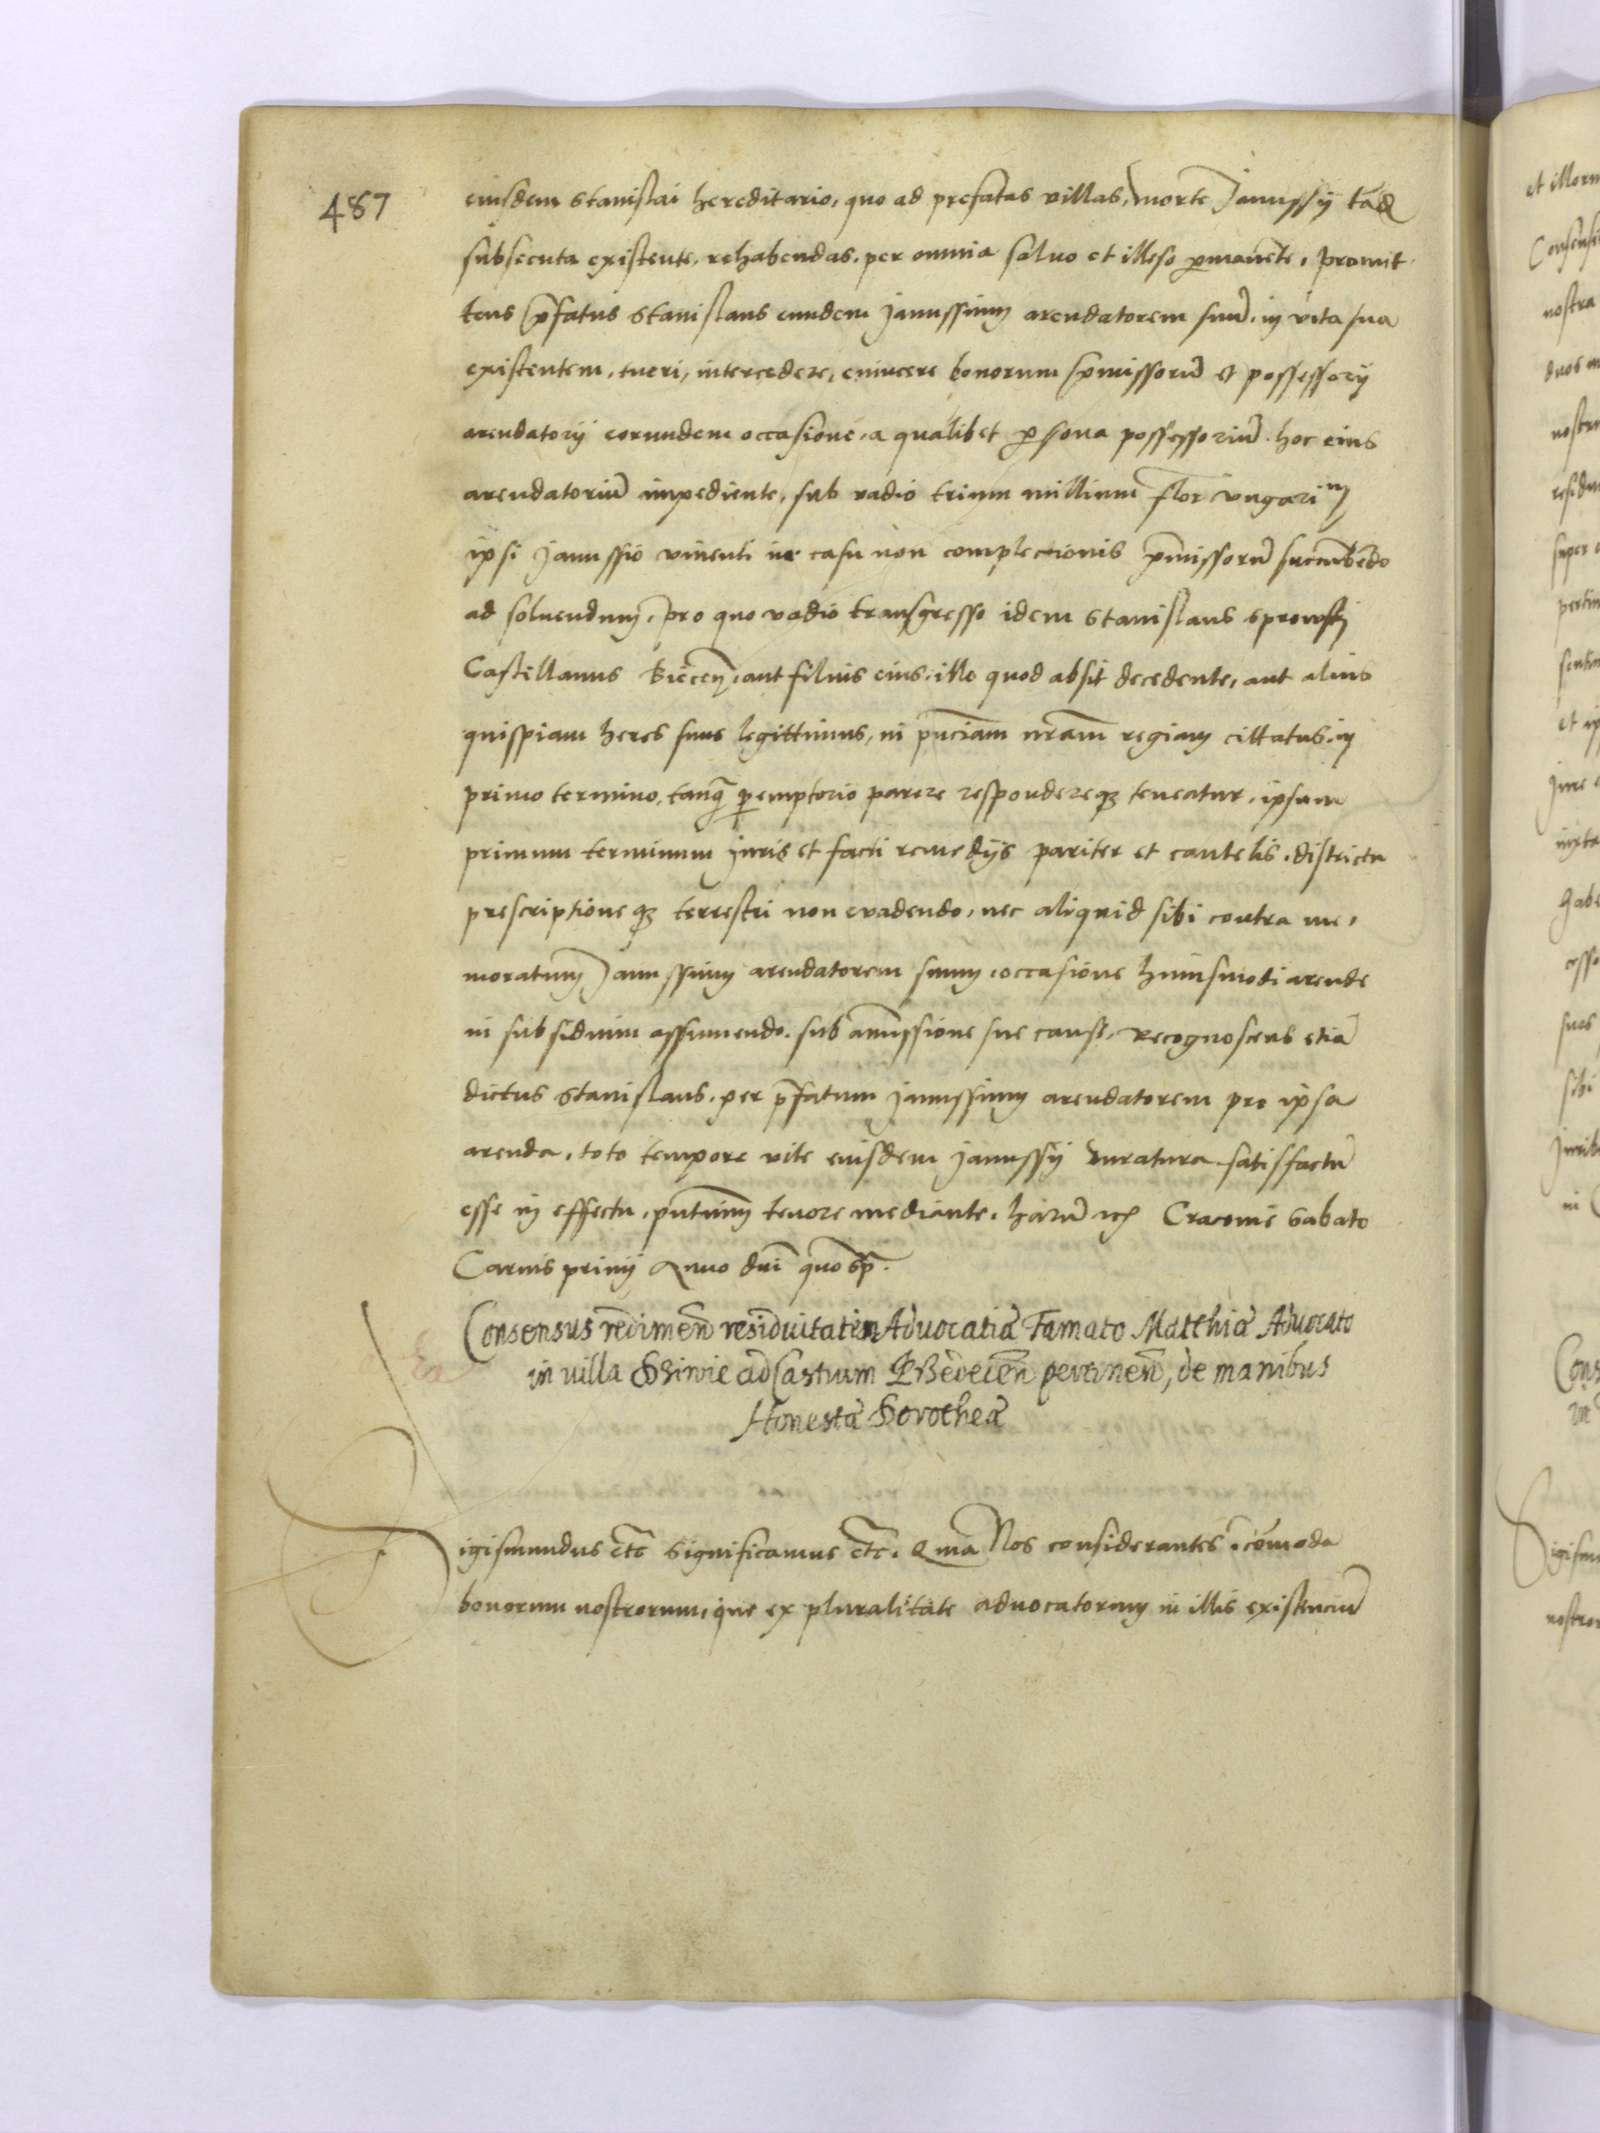 487
eiusdem Stanislai hereditario, quo ad prefatas villas, morte Janussy tãdẽ
subsecuta existente, rehabendas, per omnia salvo et illeso p̱manẽte, promit
tens p̃fatus Stanislaus eundem Janussium arendatorem suũ, in vita sua
existentem, tueri, intercedere, evincere bonorum p̃missorũ et possessorij
arendatorij eorundem occasione, a qualibet p̱sona possessoriũ hoc eius
arendatoriũ impediente, sub vadio trium millium flor ungari
ipsi Janussio viventi in casu non completionis p̃missorũ sucumbẽdo
ad solvendum, pro quo vadio transgresso idem Stanislaus Sprowsky
Castellanus Biecen̄, aut filius eius, illo quod absit decedente, aut alius
quispiam heres suus legittimus, in p̃nciam nr̃am regiam cittatus, in
primo termino, tanq̃ p̱emptorio parere respondereqȝ teneatur, ipsum
primum terminum juris et facti remedijs pariter et cautelis, districtu
prescriptioneqȝ terrestri non evadendo, nec aliquid sibi contra me,
moratum Janussium arendatorem suum, occasione huiusmodi arende
in subsidium assumendo, sub amissione sue cause, Recognoscens etiã
dictus Stanislaus, per p̃fatum Janussium arendatorem pro ipsa
arenda, toto tempore vite eiusdem Janussy duratura satisfactũ
esse in effectu, p̃ntium tenore mediante, harũ etc Cracovie Sabato
Carnis privij Anno dñi quo sp̃.
Consensus redimen̄ residuitatem Advocatiæ Famato Matthiæ Advocato
in villa ad Castrum pertinen̄, de manibus
Honestæ Dorotheæ
Sigismundus etc Significamus etc. Quia Nos considerantes cõmoda
bonorum nostrorum, que ex pluralitate advocatorum in illis existenciũ
et illorum
nostra
duos
Cons